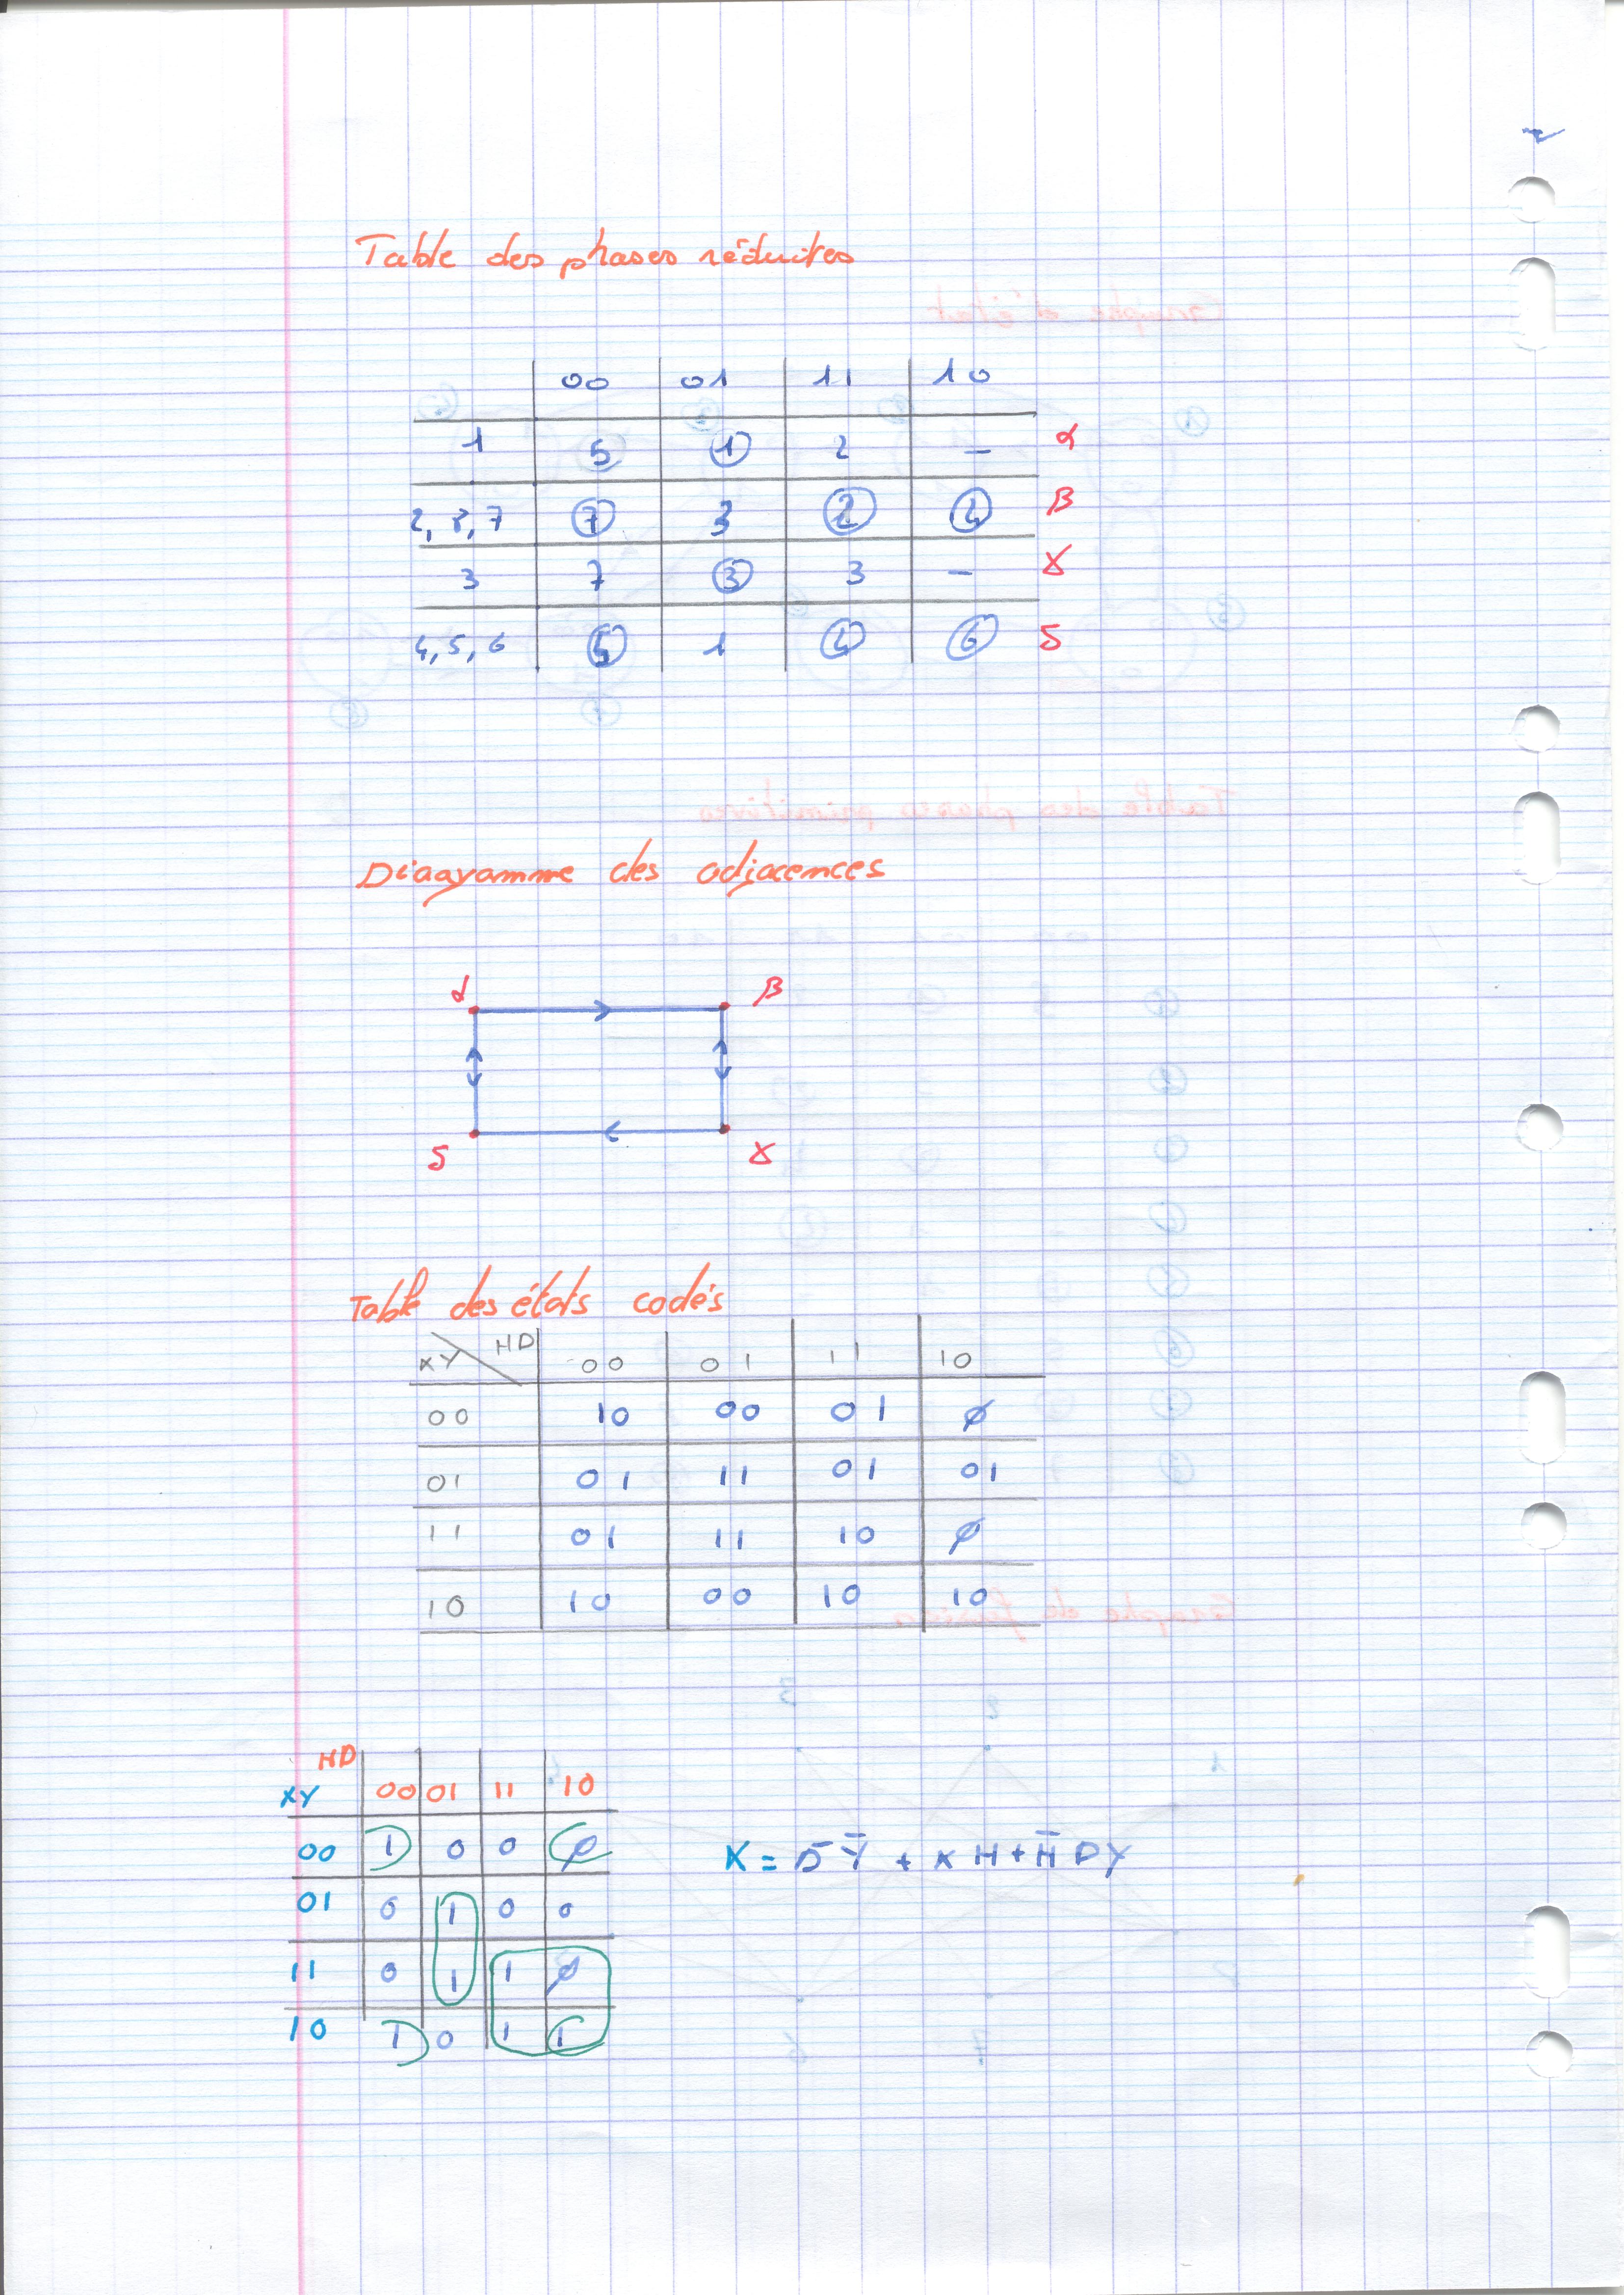 Table des phases réduites
00 01 11 10
1 5 1 2 – α
2, 8, 7 7 3 2 2 β
3 7 3 3 – γ
4, 5, 6 5 1 4 6 δ
Diagramme des adjacences
α β
δ γ
Table des états codés
XY HD 00 01 11 10
00 10 00 01 ∅
01 01 11 01 01
11 01 11 10 ∅
10 10 00 10 10
HD
XY 00 01 11 10
00 1 0 0 ∅
01 0 1 0 0
11 0 1 1 ∅
10 1 0 1 1
X = D̄ Ȳ + X H + H̄ D Y